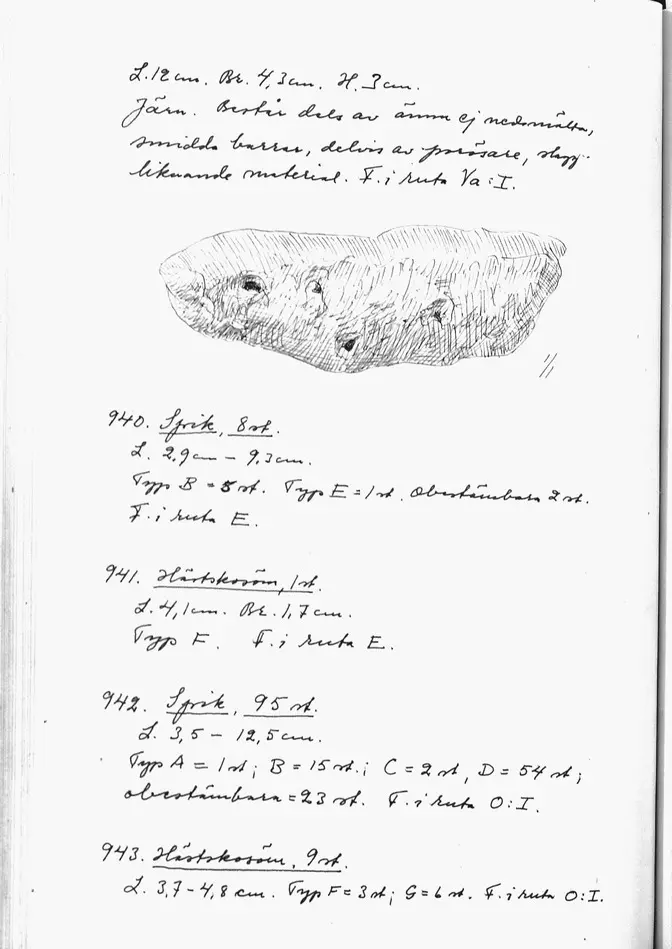 L. 12 cm. Br. 4,3 cm. H. 3 cm.
Järn. Består dels av ännu ej nedsmälta,
smidda barrar, delvis av porösare, slagg-
liknande material. F. i ruta Va:I.
1/1
940. Spik, 8 st.
L. 2,9 cm – 9,3 cm.
Typ B = 5 st. Typ E = 1 st. Obestämbara 2 st.
F. i ruta E.
941. Hästskosöm, 1 st.
L. 4,1 cm. Br. 1,7 cm.
Typ F. F. i ruta E.
942. Spik, 95 st.
L. 3,5 – 12,5 cm.
Typ A = 1 st; B = 15 st.; C = 2 st, D = 54 st;
obestämbara = 23 st. F. i ruta O:I.
943. Hästskosöm, 9 st.
L. 3,7 – 4,8 cm. Typ F = 3 st; G = 6 st. F. i ruta O:I.